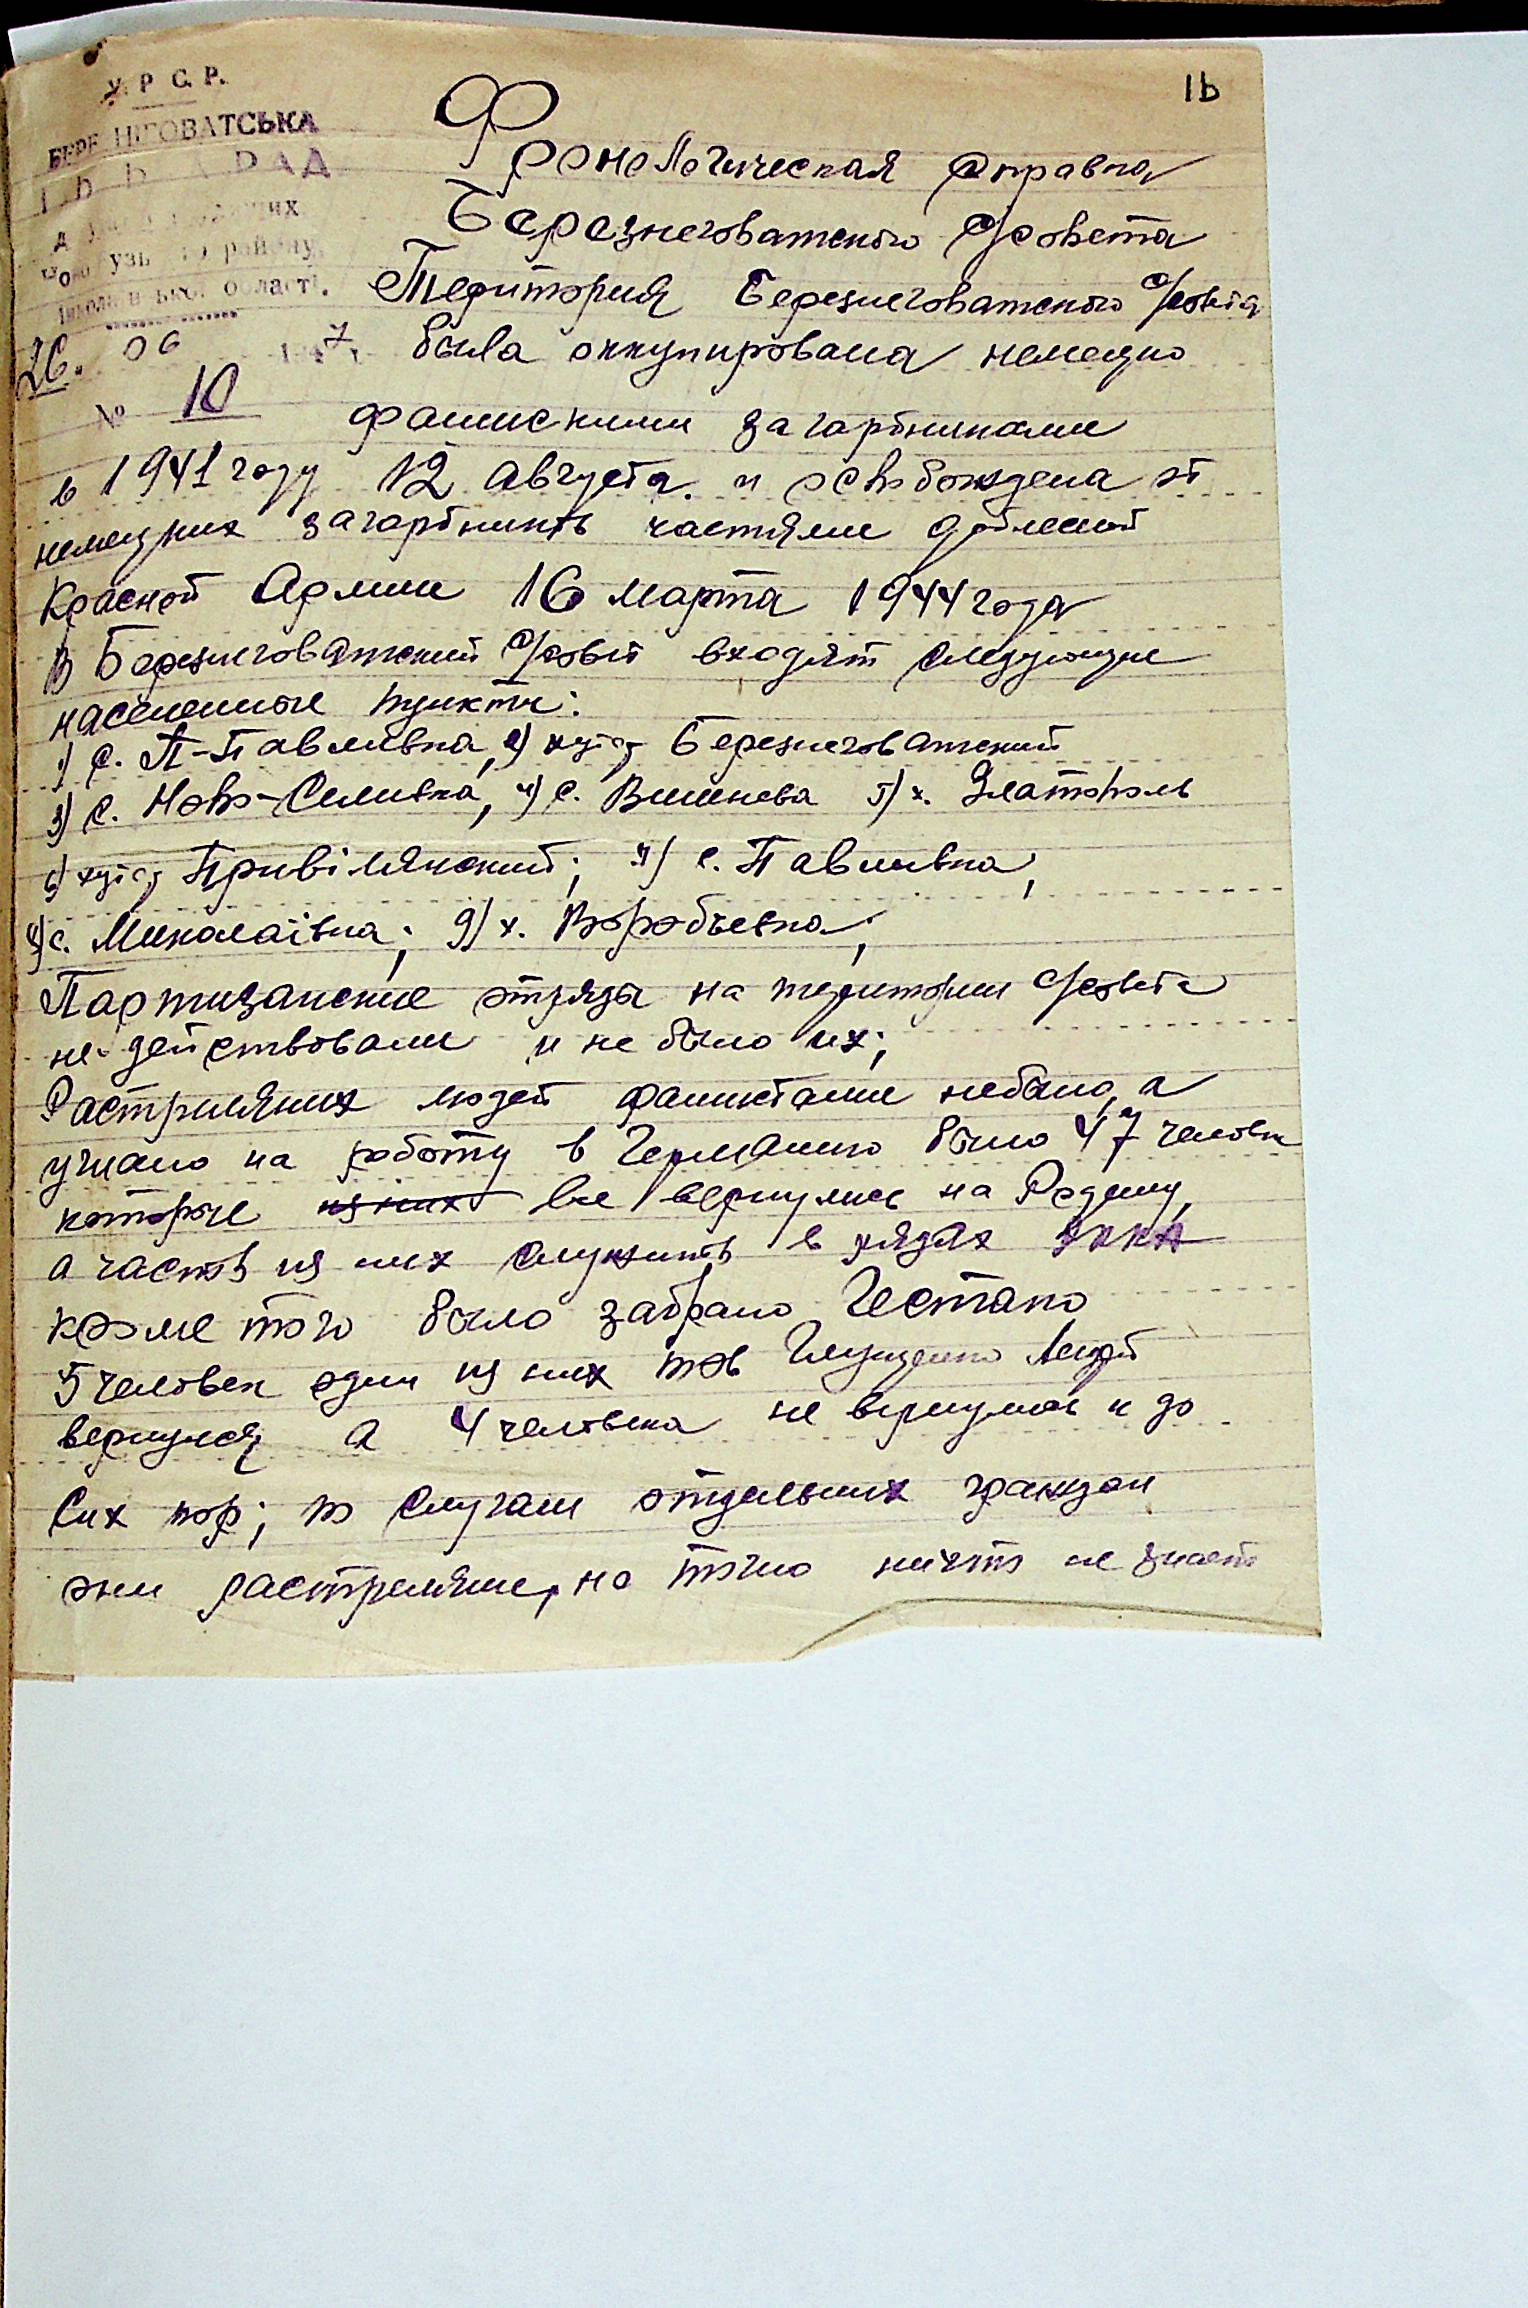 У Р С. Р.
16
БЕРЕ НІГОВАТСЬКА
Фронологическая справка
РАД
Березнеговатского с/совета
району,
області.
Територия Березнеговатского с/совета
26. 06 1947 г. была оккупирована немецко
№ 10 фашискими загарбниками
в 1941 году 12 августа. и освобождена от
немецких загарбников частями доблесной
Красной Армии 16 марта 1944 года
В Березнеговатский с/совет входят следующие
населенные пункты:
1) с. П-Павливка, 2) хутор Березнеговатский
3) с. Ново-Селивка, 4) с. Вишнева 5) х. Златополь
6) хутор Привілянский; 7) с. Павливка;
8) с. Миколаївка; 9) х. Воробьевка;
Партизанские отряды на територии с/совета
не действовали и не было их;
Растриляних людей фашистами небыло, а
угнано на работу в Германию было 47 человек
которые из них все вернулись на Родину,
а часть из них служить в рядах РККА
кроме того было забрано Гестапо
5 человек один из них тов Глущенко
вернулся а 4 человека не вернулись и до
Сих пор; по случаи отдельних граждан
они растреляние, но точно ничто не знает